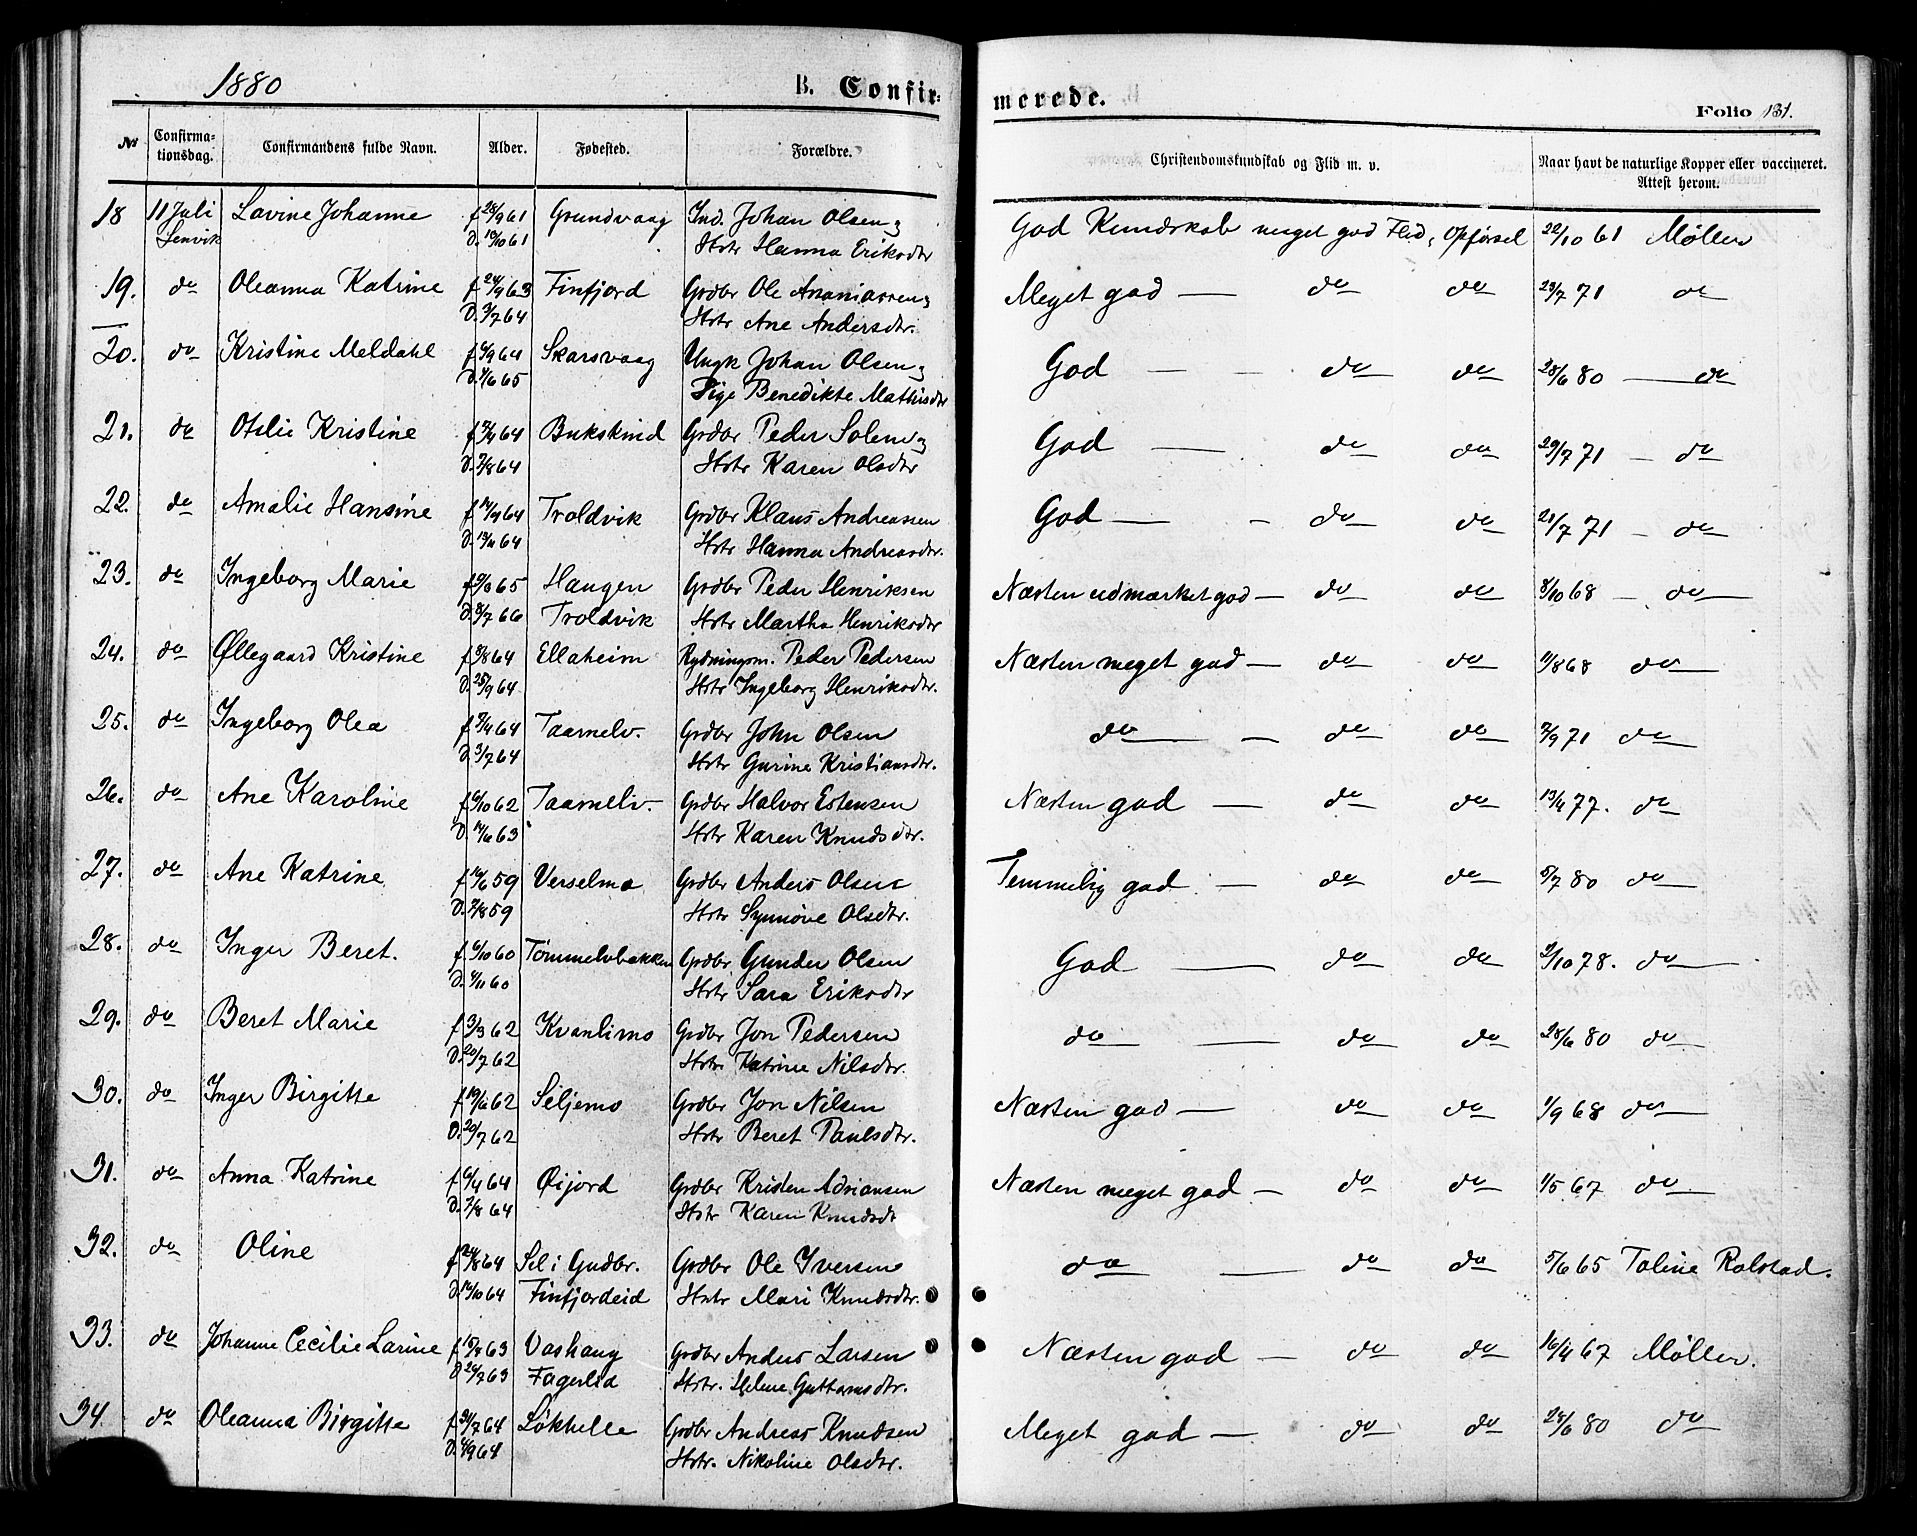 1880
B. Confir-
merede.
Folio 131.
No
Confirma-
tionsdag.
Confirmandens fulde Navn.
Alder.
Fødested.
Forældre.
Christendomskundskab og Flid m. v.
Naar havt de naturlige Kopper eller vaccineret.
Attest herom.
18 11 Juli Lavine Johanne f 28/9 61 Grundvaag Ind. Johan Olsen og God Kundskab meget god Flid, Opførsel 22/10 61 Møller
Lenvik D. 10/10 61 Hstr Hanna Eriksdtr
19. do Oleanna Katrine f 24/9 63 Finfjord Grdbr Ole Ananiassen og Meget god — do do 23/7 71 do
D. 3/7 64 Hstr Ane Andersdtr.
20. do Kristine Meldahl f 4/9 64 Skarsvaag Ungk Johan Olsen og God — — do do 28/6 80 — do
D. 7/6 65 Pige Benedikte Mathisdtr
21. do Otilie Kristine f 7/4 64 Bukskind Grdbr Peder Solem og God — do do 29/7 71 — do
D. 7/8 64 Hstr Karen Olsdtr
22. do Amalie Hansine f 14/9 64 Troldvik Grdbr Klaus Andreassen God — - do do 21/7 71 — do
D. 13/11 64 Hstr Hanna Andreasdtr.
23. do Ingeborg Marie 65 Haugen Grdbr Peder Henriksen Næsten udmærket god — do do 8/10 68 — do
D. 8/7 66 Troldvik Hstr Martha Henriksdtr
24. do Øllegaard Kristine f 3/8 64 Ellaheim Rydningsm. Peder Pedersen Næsten meget god — do do 11/8 68 do
D. 25/9 64 Hstr Ingeborg Henriksdtr.
25. do Ingeborg Olea f 7/4 64 Taarnelv. Grdbr John Olsen do — do do 7/9 71 do
D. 3/7 64 Hstr Gurine Kristiansdtr.
26. do Ane Karoline f 6/10 62 Taarnelv. Grdbr Halvor Estensen Næsten god — do do 13/4 77. do
D. 14/6 63 Hstr Karen Knudsdtr.
27. do Ane Katrine f 14/6 59 Verselmo Grdbr Anders Olsen Temmelig god — do do 5/7 80 do
D. 7/8 59 Hstr Synnøve Olsdtr.
28. do Inger Beret. f 6/10 60 Tømmelvbakken Grdbr Gunder Olsen God — do do 2/10 78. do
D. 4/11 60 Hstr Sara Eriksdtr
29. do Beret Marie f 3/3 62 Kvanlimo Grdbr Jon Pedersen do — do do 28/6 80 do
D. 20/7 62 Hstr Katrine Nilsdtr.
30. do Inger Birgitte f 19/6 62 Seljemo Grdbr Jon Nilsen Næsten god — do do 1/9 68 do
D. 20/7 62 Hstr Beret Paulsdtr.
31. do Anna Katrine f 6/4 64 Øijord Grdbr Kristen Adriansen Næsten meget god — do do 1/5 67 do
D. 7/8 64 Hstr Karen Knudsdt
32. do Oline f 24/8 64 Sel i Gudbr. Grdbr Ole Iversen do — do do 5/6 65 Toline Rolstad.
D. 16/10 64 Finfjordeid Hstr Mari Knudsdtr.
33. do Johanne Cecilie Larine 63 Vashaug Grdbr Anders Larsen Næsten god — do do 16/4 67 Møller.
D. 26/7 63 Fagerlid Hstr. Helene Guttormsdtr.
34. do Oleanna Birgitte f 31/7 64 Løkhelle Grdbr Andreas Knudsen Meget god — do do 28/6 80 do
D. 4/9 64 Hstr. Nikoline Olsdtr.